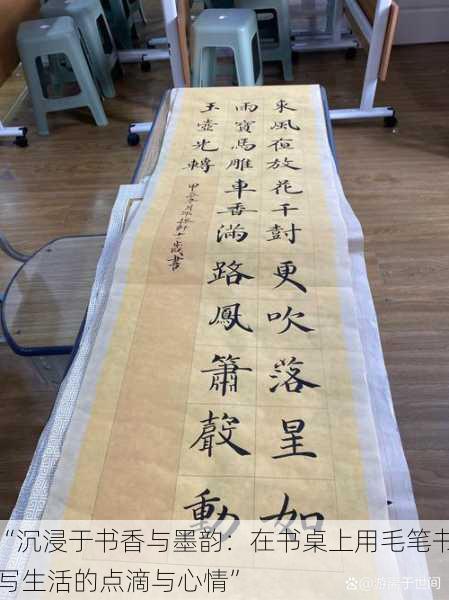 東風夜放花千對更吹落星如
雨寶馬雕車香滿路鳳簫聲動
玉壺光轉
甲辰
書
“沉浸于书香与墨韵：在书桌上用毛笔书
写生活的点滴与心情”